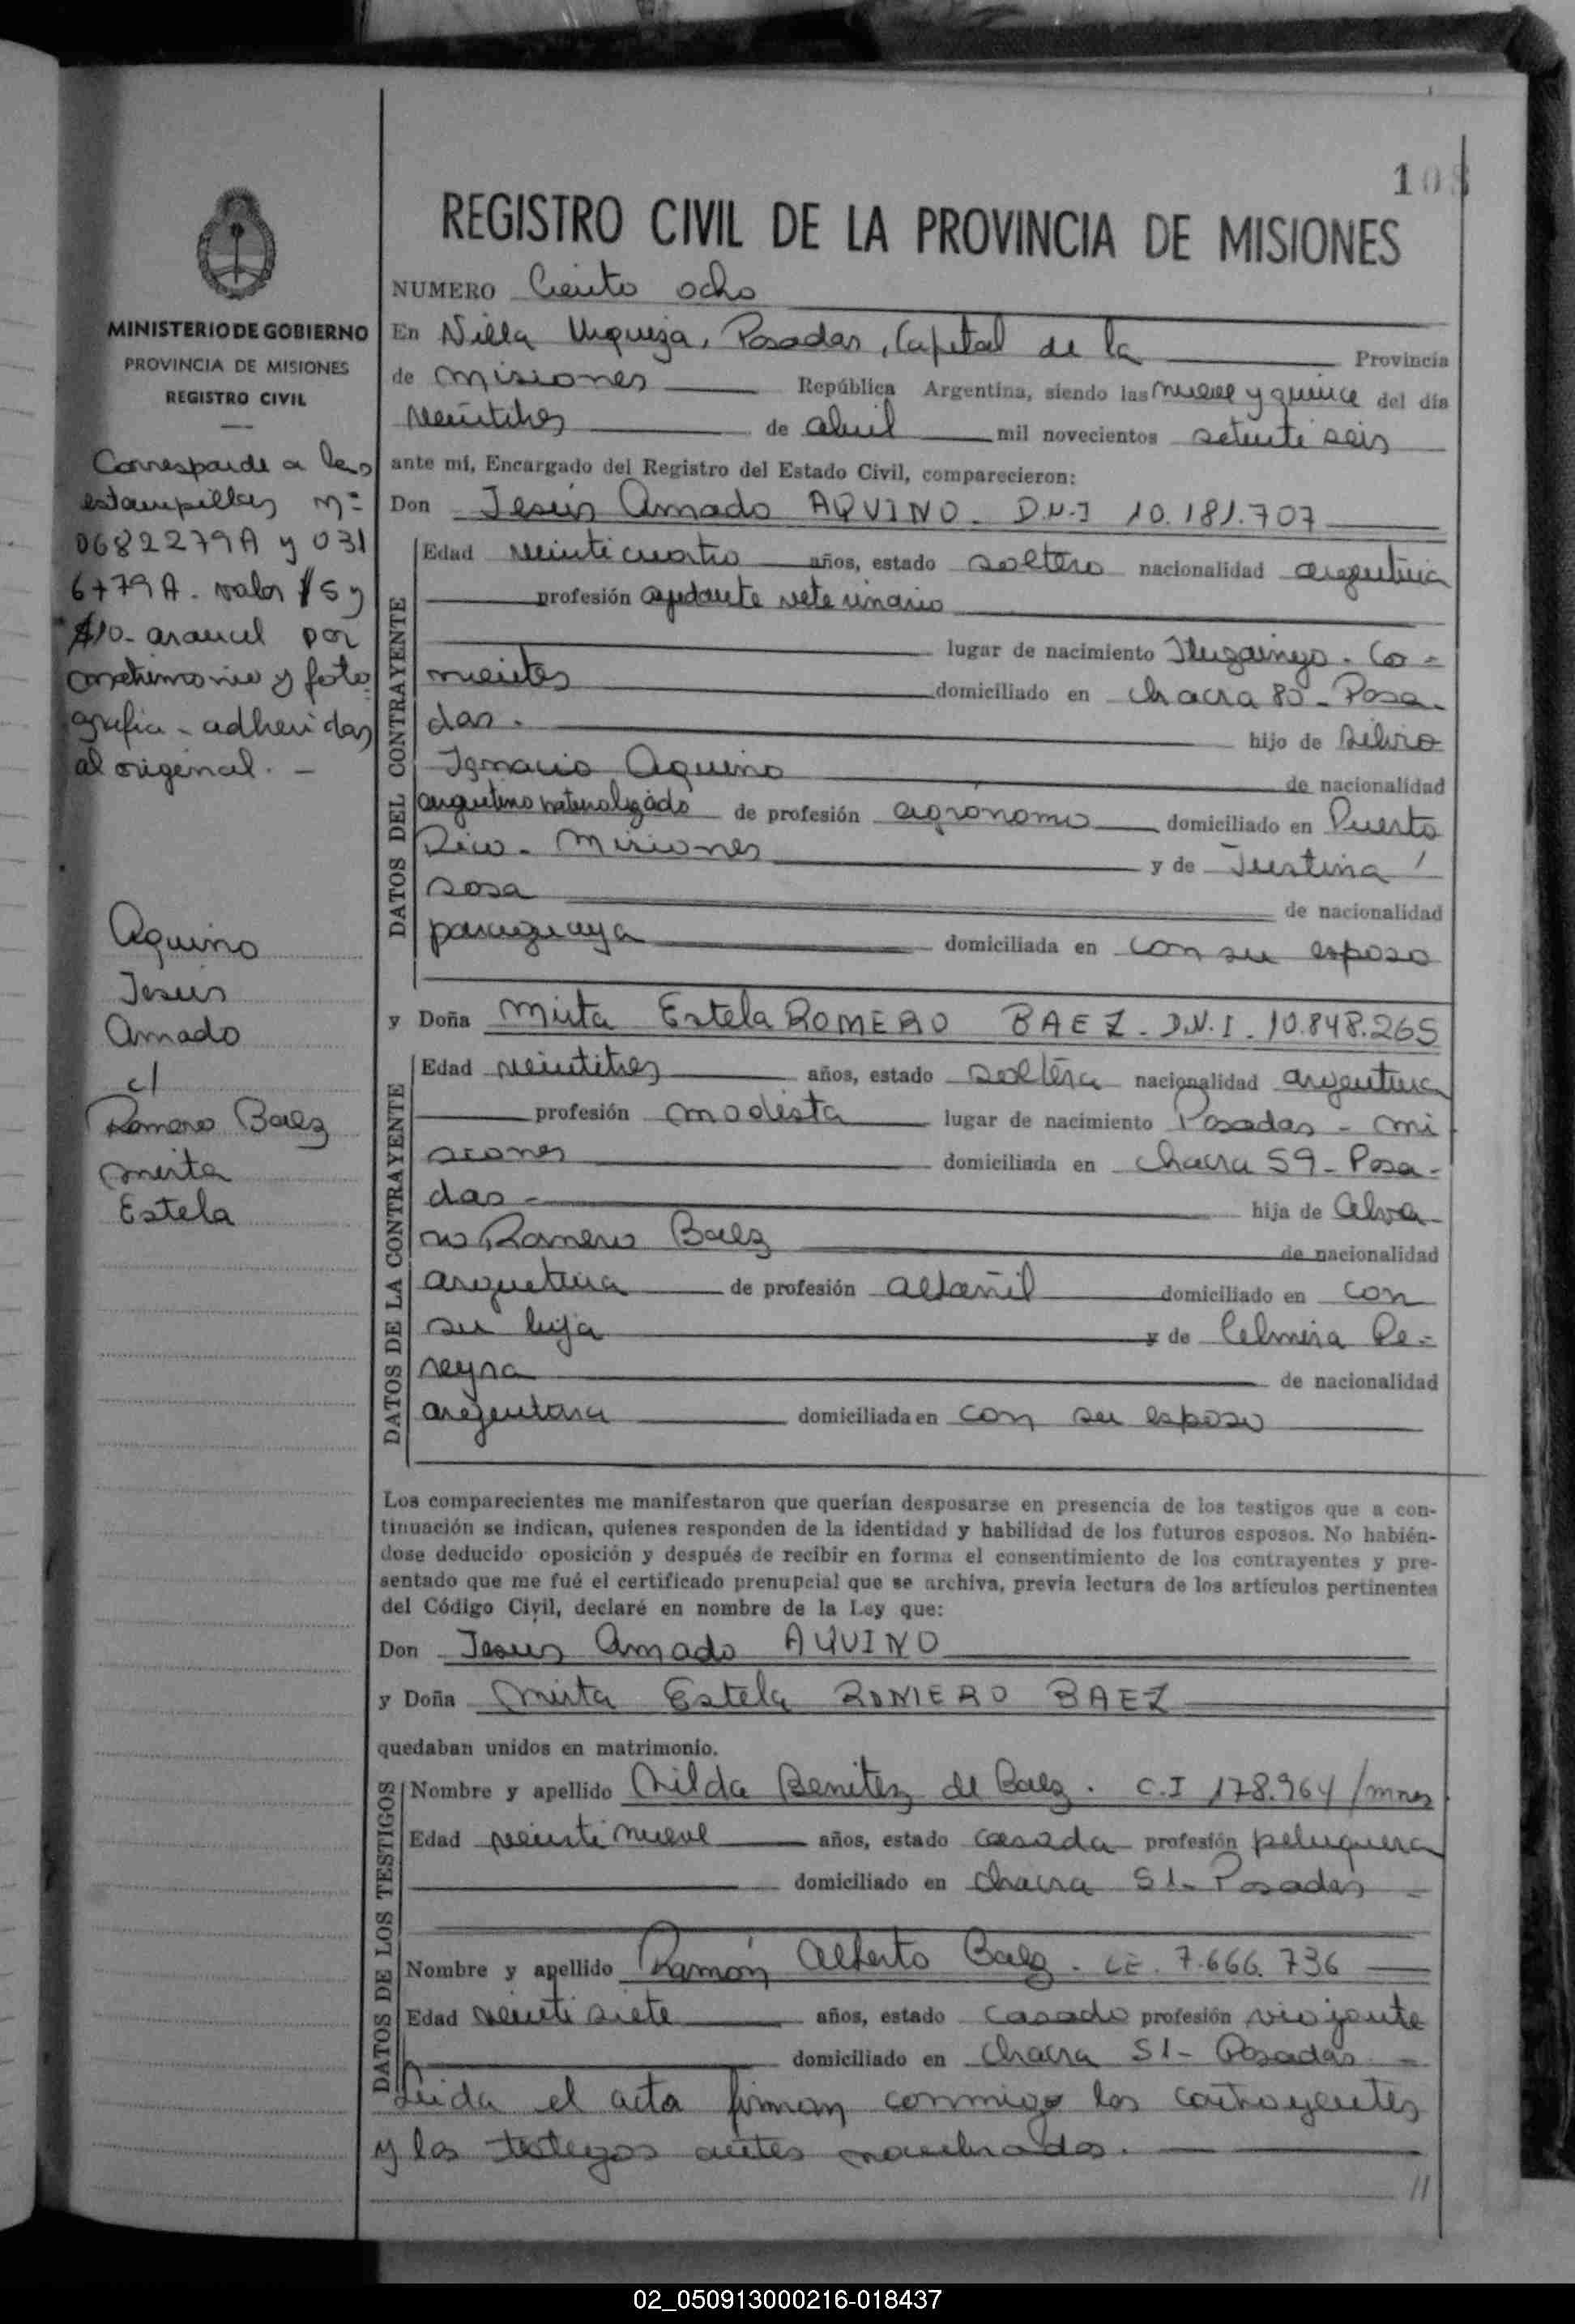 108
REGISTRO CIVIL DE LA PROVINCIA DE MISIONES
NUMERO Ciento ocho
MINISTERIO DE GOBIERNO
PROVINCIA DE MISIONES
REGISTRO CIVIL
Corresponde a las
estampillas nº
0682279A y 031
6779A. valor $5 y
$10- arancel por
matrimonio y foto
grafia - adheridas
al original. -
Aquino
Jesús
Amado
c/
Romero Baez
Mirta
Estela
En Villa Urquiza, Posadas, Capital de la Provincia
de Misiones República Argentina, siendo las nueve y quince del día
veintitres de abril mil novecientos setenti seis
ante mí, Encargado del Registro del Estado Civil, comparecieron:
Don Jesús Amado AQUINO. D.N.I 10.181.707
DATOS DEL CONTRAYENTE
Edad veinticuatro años, estado soltero nacionalidad argentina
profesión ayudante veterinario
lugar de nacimiento Ituzaingo. Co=
rrientes domiciliado en chacra 80 - Posa-
das. hijo de Silvio
Ignacio Aquino de nacionalidad
argentino naturalizado de profesión agrónomo domiciliado en Puerto
Rico - Misiones y de Justina
Sosa de nacionalidad
paraguaya domiciliada en con su esposo
y Doña Mirta Estela ROMERO BAEZ - D.N.I. 10.848.265
DATOS DE LA CONTRAYENTE
Edad veintitres años, estado soltera nacionalidad argentina
profesión modista lugar de nacimiento Posadas - Mi
siones domiciliada en chacra 59 - Posa-
das - hija de Alva-
ro Romero Baez de nacionalidad
argentina de profesión albañil domiciliado en con
su hija y de Celmira Pe=
reyra de nacionalidad
argentina domiciliada en con su esposo
Los comparecientes me manifestaron que querían desposarse en presencia de los testigos que a con-
tinuación se indican, quienes responden de la identidad y habilidad de los futuros esposos. No habién-
dose deducido oposición y después de recibir en forma el consentimiento de los contrayentes y pre-
sentado que me fué el certificado prenupcial que se archiva, previa lectura de los artículos pertinentes
del Código Civil, declaré en nombre de la Ley que:
Don Jesus Amado AQUINO
y Doña Mirta Estela ROMERO BAEZ
quedaban unidos en matrimonio.
DATOS DE LOS TESTIGOS
Nombre y apellido Nilda Benitez de Baez. C.I 178.964/mnes
Edad veinti nueve años, estado casada profesión peluquera
domiciliado en chacra 51- Posadas
Nombre y apellido Ramón Alberto Baez. LE. 7.666.736
Edad veinti siete años, estado casado profesión viajante
domiciliado en chacra 51- Posadas
Leida el acta firman conmigo los contrayentes
y los testigos antes nombrados.
//
02_050913000216-018437